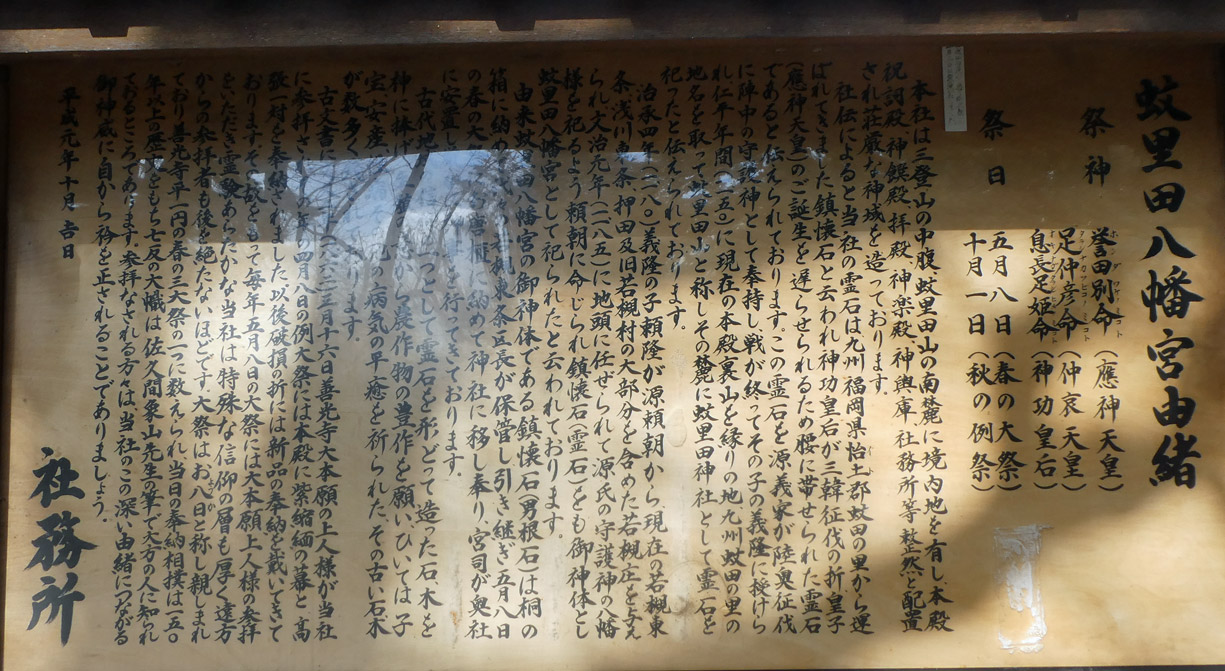 蚊里田八幡宮由緒
祭神
誉田別命（應神天皇）
足仲彦命（仲哀天皇）
息長足姫命（神功皇后）
祭日
五月八日（春の大祭）
十月一日（秋の例祭）
本社は三登山の中腹蚊里田山の南麓に境内地を有し、本殿
祝詞殿、神饌殿、拝殿、神楽殿、神輿庫、社務所等整然と配置
され荘厳な神域を造っております。
社伝によると当社の霊石は九州福岡県怡土郡蚊田の里から運
ばれてきました鎮懐石と云われ神功皇后が三韓征伐の折、皇子
（應神天皇）のご誕生を遅らせられるため腰に帯せられた霊石
であると伝えられております。この霊石を源義家が陸奥征伐
に陣中の守護神として奉持し、戦が終ってその子の義隆に授けら
れ仁平年間（一一五〇）に現在の本殿裏山を縁りの地九州蚊田の里の
地名を取って蚊里田山と称しその麓に蚊里田神社として霊石を
祀ったと伝えられております。
治承四年（一一八〇）義隆の子頼隆が源頼朝から現在の若槻東
条、浅川東条、押田及旧若槻村の大部分を含めた若槻庄を与え
られ文治元年（一一八五）に地頭に任ぜられて源氏の守護神の八幡
様を祀るよう頼朝に命じられ鎮懐石（霊石）をも御神体とし
蚊里田八幡宮として祀られたと云われております。
由来蚊里田八幡宮の御神体である鎮懐石（男根石）は桐の
箱に納め 若槻東条区長が保管し引き継ぎ五月八日
の春の大 に納めて神社に移し奉り、宮司が奥社
に安置し を行ってきております。
古代地 つとして霊石を形どって造った石、木を
神に捧げ から農作物の豊作を願い、ひいては子
宝、安産、 の病気の平癒を祈られた、その古い石木
が数多く ります。
古文書に （一八六三）三月十六日善光寺大本願の上人様が当社
に参拝され の年の四月八日の例大祭には本殿に紫縮緬の幕と高
張一対を奉納されました。以後破損の折には新品の奉納を戴いてきて
おります。その故をもって毎年五月八日の大祭には大本願上人様の参拝
をいただき霊験あらたかな当社は特殊な信仰の層も厚く遠方
からの参拝者も後を絶たないほどです。大祭はお八日と称し親しまれ
ており善光寺平一円の春の三大祭の一つに数えられ、当日の奉納相撲は一五〇
年以上の歴史をもち七反の大幟は佐久間象山先生の筆で大方の人に知られ
ておるところであります。参拝なされる方々は当社のこの深い由緒につながる
御神蔵に自から衿を正されることでありましょう。
平成元年十月吉日
社務所